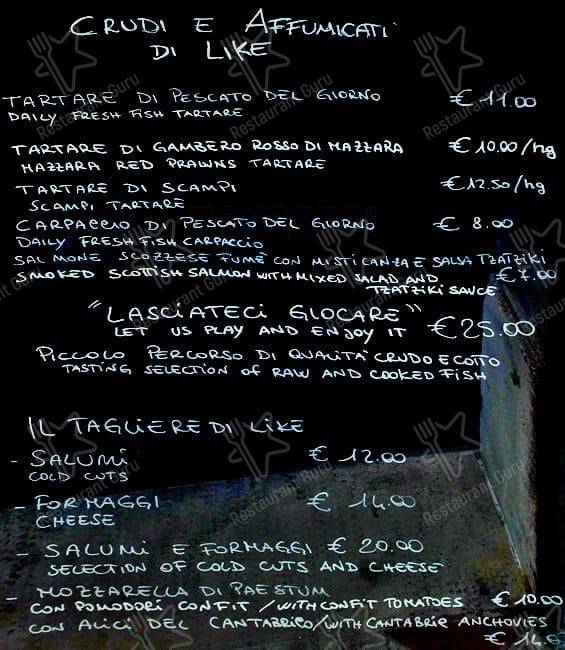 CRUDI E AFFUMICATI
DI LIKE
TARTARE DI PESCATO DEL GIORNO € 11.00
DAILY FRESH FISH TARTARE
TARTARE DI GAMBERO ROSSO DI MAZZARA € 10.00/hg
MAZZARA RED PRAWNS TARTARE
TARTARE DI SCAMPI € 12.50/hg
SCAMPI TARTARE
CARPACCIO DI PESCATO DEL GIORNO € 8.00
DAILY FRESH FISH CARPACCIO
SALMONE SCOZZESE FUMÉ CON MISTICANZA E SALSA TZATZIKI
SMOKED SCOTTISH SALMON WITH MIXED SALAD AND € 7.00
TZATZIKI SAUCE
"LASCIATECI GIOCARE"
LET US PLAY AND ENJOY IT € 25.00
PICCOLO PERCORSO DI QUALITÀ CRUDO E COTTO
TASTING SELECTION OF RAW AND COOKED FISH
IL TAGLIERE DI LIKE
- SALUMI € 12.00
COLD CUTS
- FORMAGGI € 14.00
CHEESE
- SALUMI E FORMAGGI € 20.00
SELECTION OF COLD CUTS AND CHEESE
- MOZZARELLA DI PAESTUM
CON POMODORI CONFIT / WITH CONFIT TOMATOES € 10.00
CON ALICI DEL CANTABRICO / WITH CANTABRIC ANCHOVIES
€ 14.
Restaurant Guru